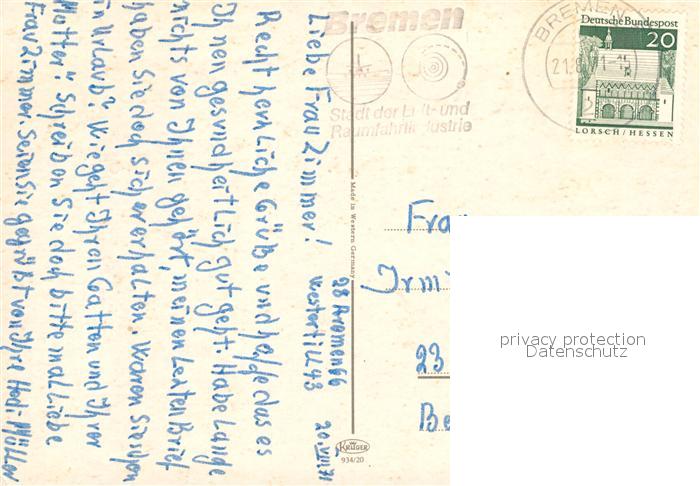 Bremen
Stadt der Luft- und
Raumfahrtindustrie
BREMEN
21.8.
Deutsche Bundespost
20
LORSCH/HESSEN
28 Bremen 66
Westerfill 43
20.VIII.71
Liebe Frau Zimmer!
Recht herzliche Grüße und hoffe das es
Ihnen gesundheitlich gut geht. Habe Lange
nichts von Ihnen gehört, meinen Letzten Brief
haben Sie doch sicher erhalten. Waren Sie schon
in Urlaub? Wie geht Ihren Gatten und Ihrer
Mutter? Schreiben Sie doch bitte mal Liebe
Frau Zimmer. Seien Sie gegrüßt von Ihre Hedi Müller
Made in Western Germany
KRÜGER
934/20
Frau
Irm
23
Be
privacy protection
Datenschutz